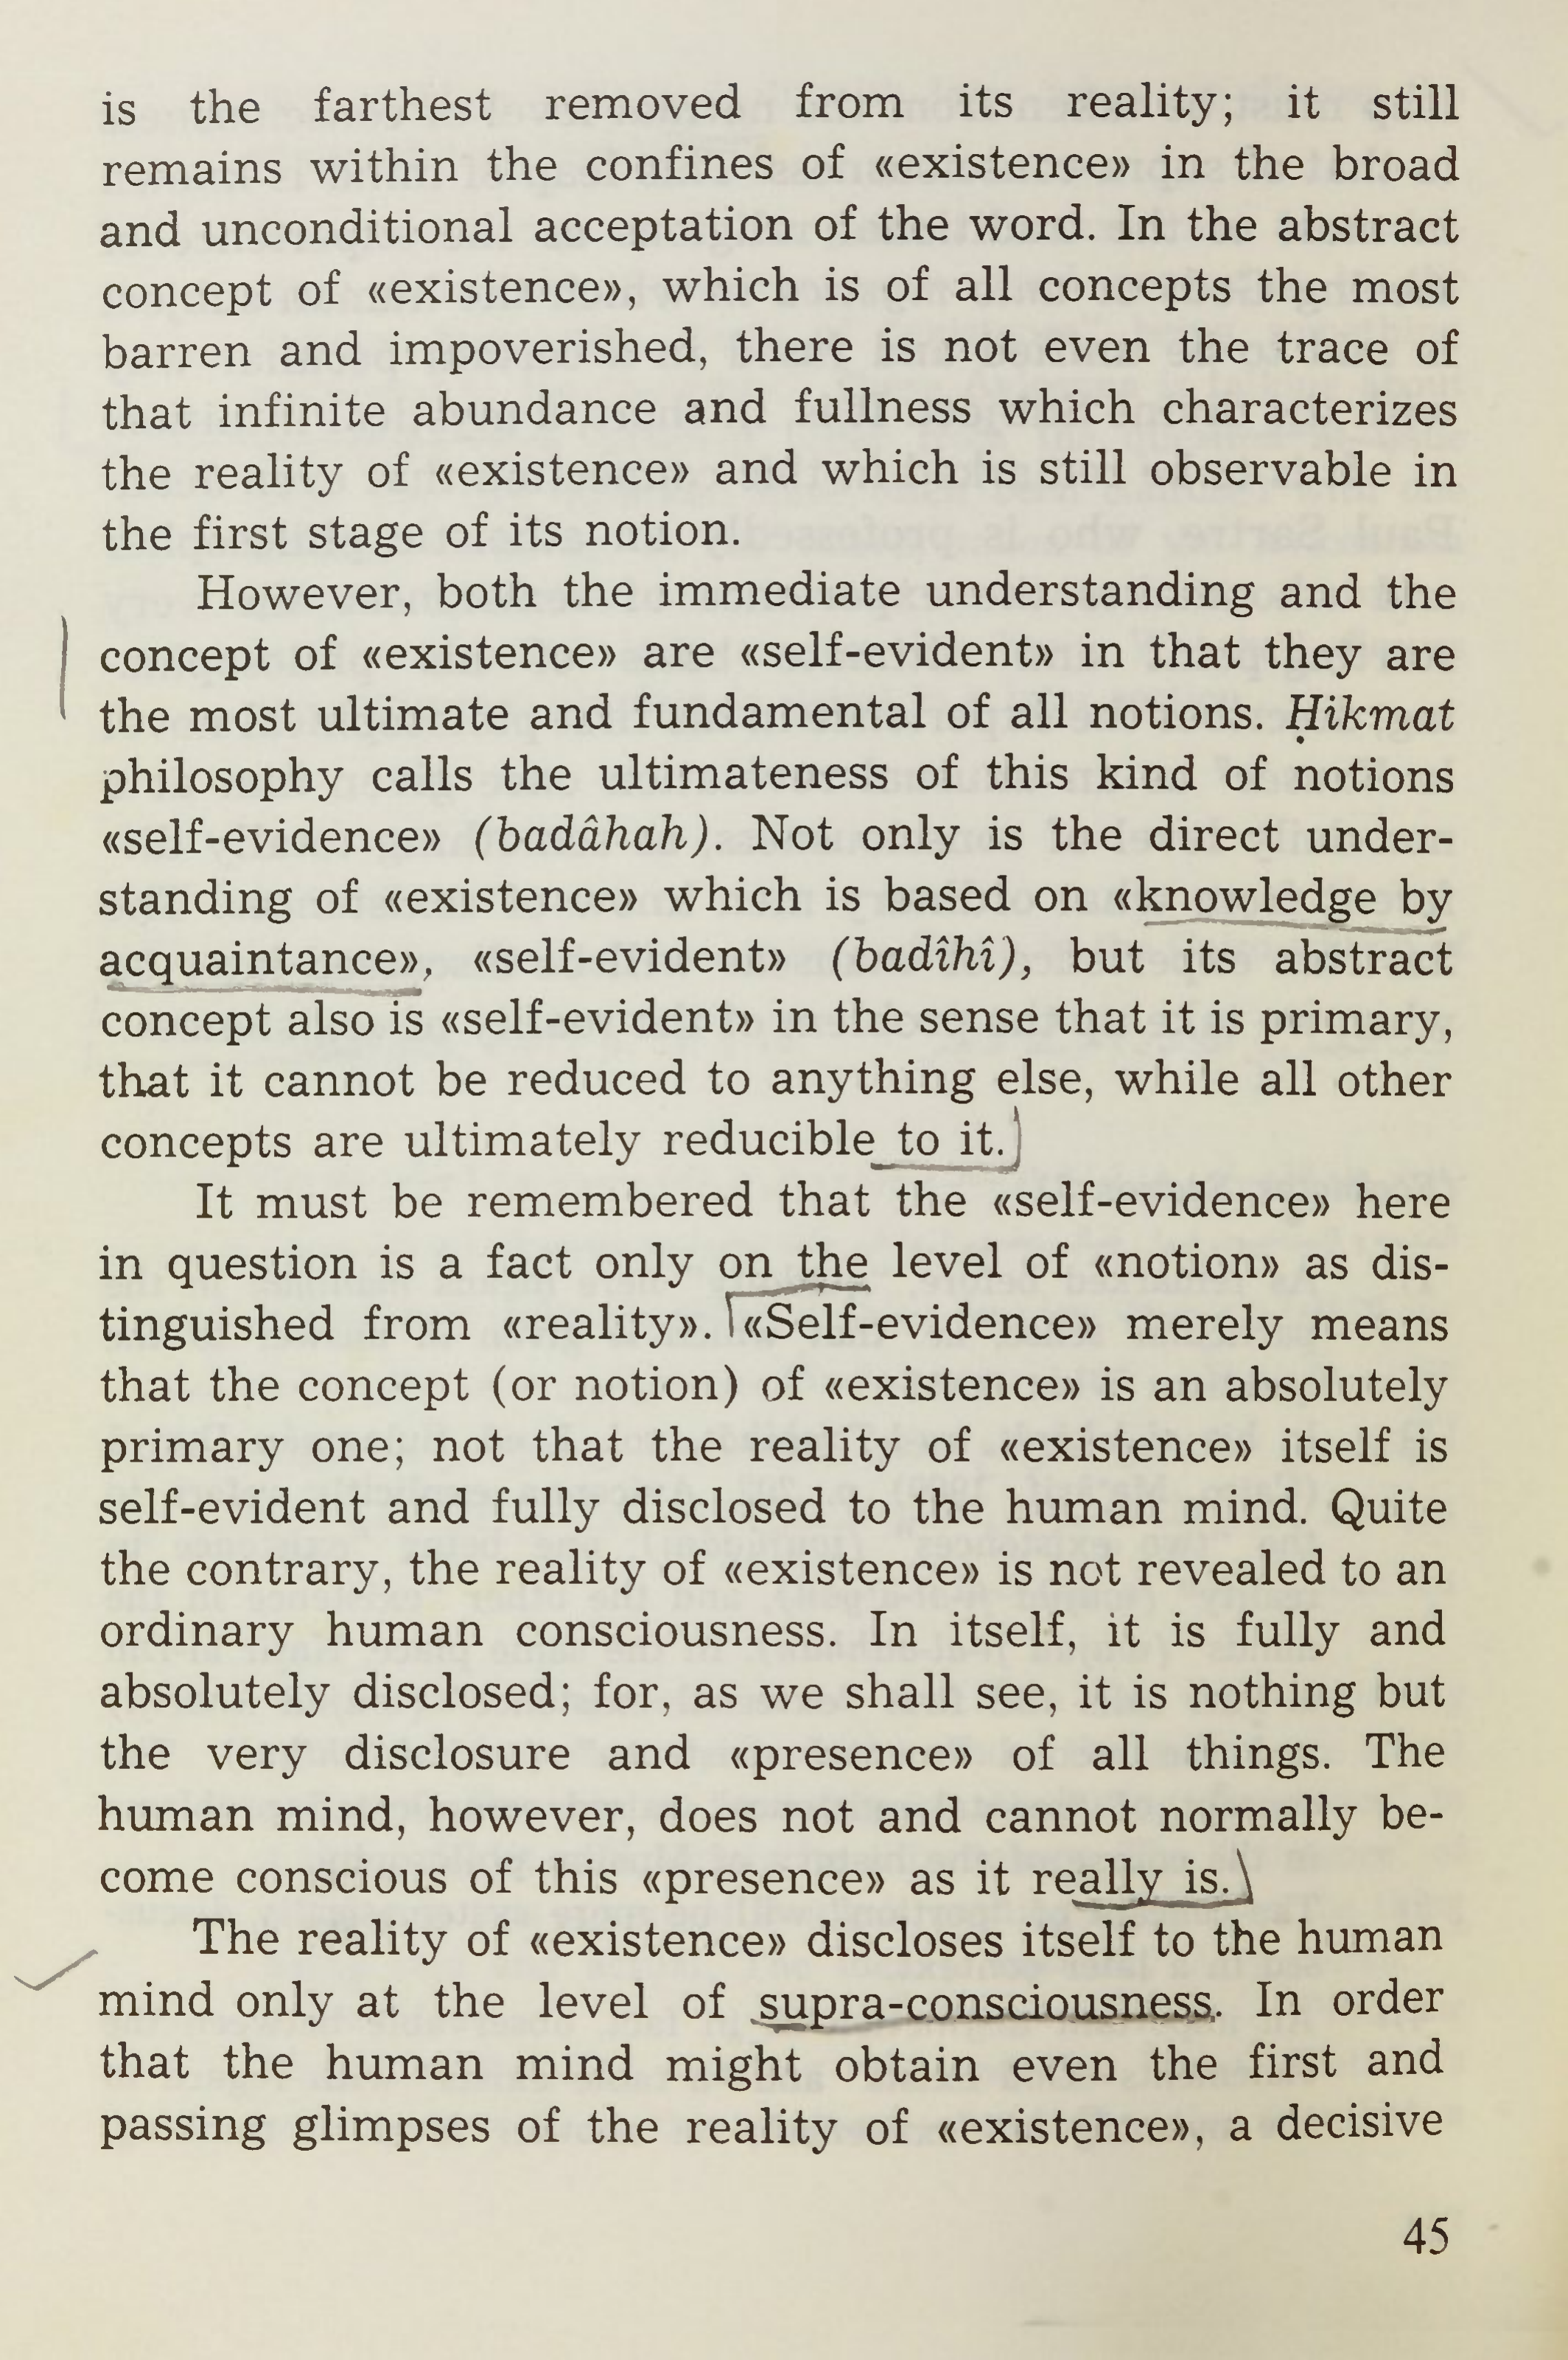 is the farthest removed from its reality; it still
remains within the confines of «existence» in the broad
and unconditional acceptation of the word. In the abstract
concept of «existence», which is of all concepts the most
barren and impoverished, there is not even the trace of
that infinite abundance and fullness which characterizes
the reality of «existence» and which is still observable in
the first stage of its notion.
However, both the immediate understanding and the
concept of «existence» are «self-evident» in that they are
the most ultimate and fundamental of all notions. Ḥikmat
philosophy calls the ultimateness of this kind of notions
«self-evidence» (badâhah). Not only is the direct under-
standing of «existence» which is based on «knowledge by
acquaintance», «self-evident» (badîhî), but its abstract
concept also is «self-evident» in the sense that it is primary,
that it cannot be reduced to anything else, while all other
concepts are ultimately reducible to it.
It must be remembered that the «self-evidence» here
in question is a fact only on the level of «notion» as dis-
tinguished from «reality». «Self-evidence» merely means
that the concept (or notion) of «existence» is an absolutely
primary one; not that the reality of «existence» itself is
self-evident and fully disclosed to the human mind. Quite
the contrary, the reality of «existence» is not revealed to an
ordinary human consciousness. In itself, it is fully and
absolutely disclosed; for, as we shall see, it is nothing but
the very disclosure and «presence» of all things. The
human mind, however, does not and cannot normally be-
come conscious of this «presence» as it really is.
The reality of «existence» discloses itself to the human
mind only at the level of supra-consciousness. In order
that the human mind might obtain even the first and
passing glimpses of the reality of «existence», a decisive
45